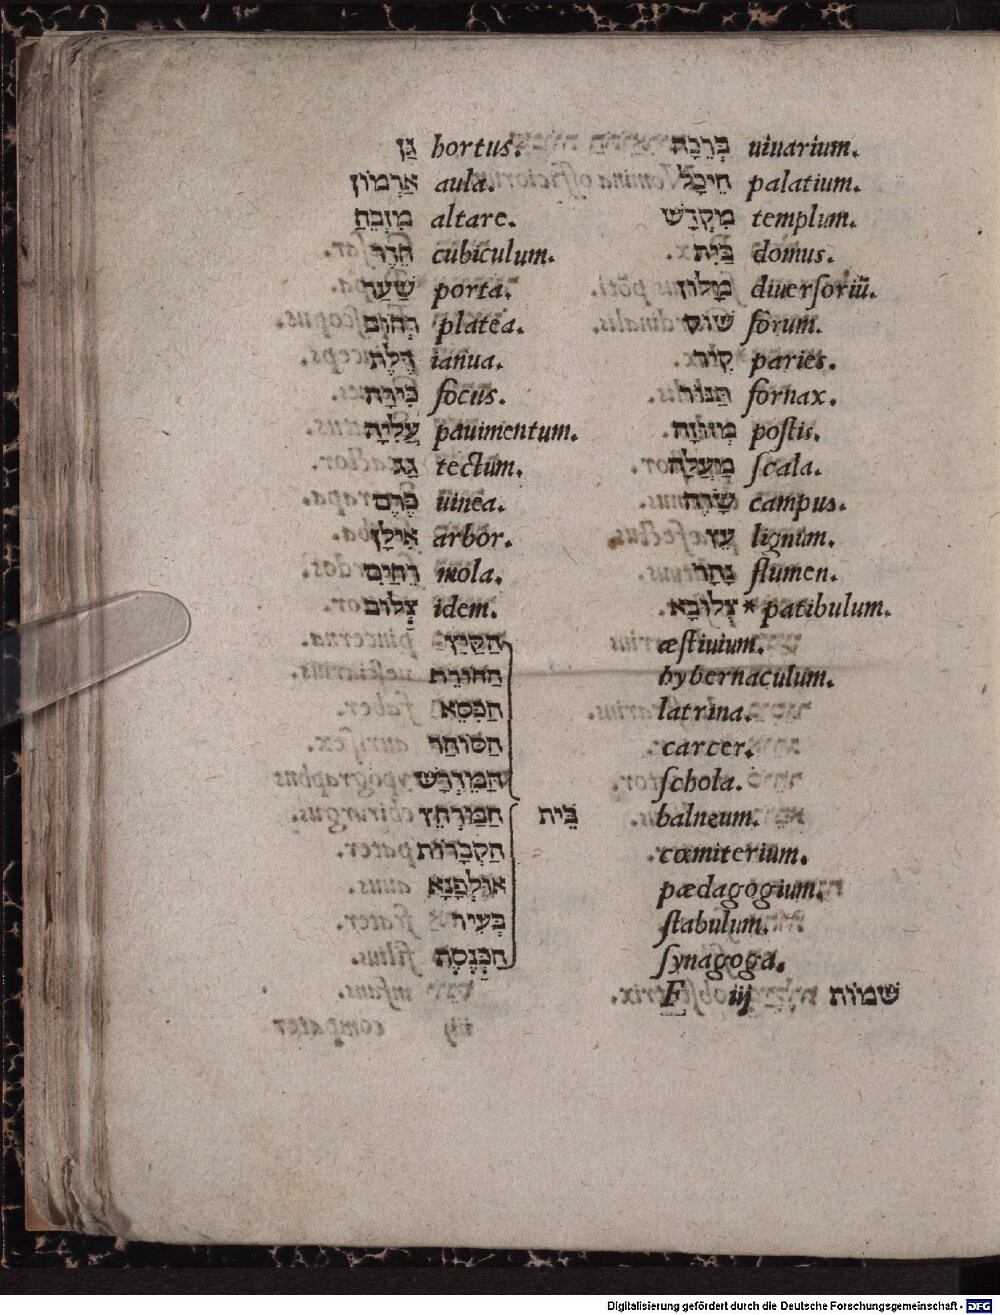 גַּן hortus. בְּרֵכָה uiuarium.
אַרְמוֹן aula. הֵיכָל palatium.
מִזְבֵּחַ altare. מִקְדָּשׁ templum.
חֶדֶר cubiculum. בַּיִת domus.
שַׁעַר porta. מָלוֹן diuerſoriū.
רְחוֹב platea. שׁוּק forum.
דֶּלֶת ianua. קִיר paries.
כִּירָה focus. תַּנּוּר fornax.
עֲלִיָּה pauimentum. מְזוּזָה poſtis.
גַּג tectum. מַעֲלָה ſcala.
כֶּרֶם uinea. שָׂדֶה campus.
אִילָן arbor. עֵץ lignum.
רֵחַיִם mola. נָהָר flumen.
צְלוֹב idem. צְלוּבָא * patibulum.
הַקַּיִץ æſtiuium.
הַחוֹרֶף hybernaculum.
הַכִּסֵּא latrina.
הַסּוֹהַר carcer.
הַמִּדְרָשׁ ſchola.
הַמֶּרְחָץ בֵּית balneum.
הַקְּבָרוֹת cœmiterium.
אוּלְפָנָא pædagogium.
בְּעִיר ſtabulum.
הַכְּנֶסֶת ſynagoga.
F iij שמות
Digitalisierung gefördert durch die Deutsche Forschungsgemeinschaft - DFG